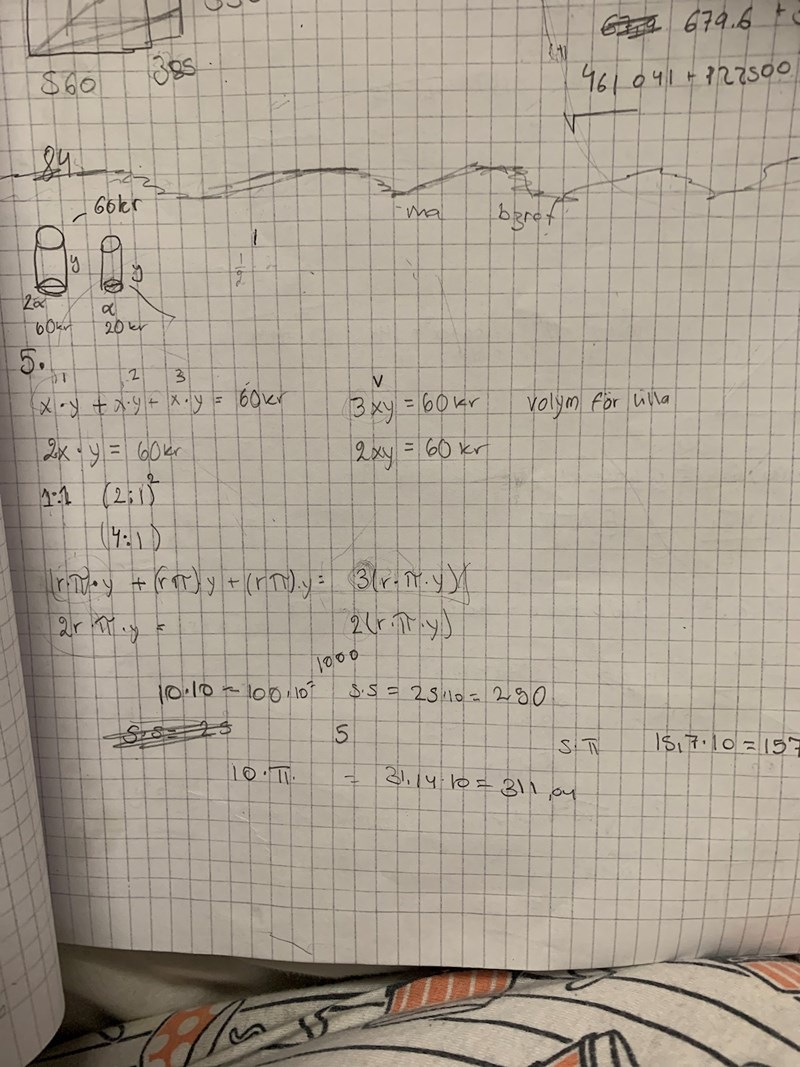 679.6 +
560 385
461 041 + 122500
√
84
60kr
ma
y y
1
1/2
2x x
60kr 20kr
5.
1 2 3 V
x·y + x·y + x·y = 60kr 3xy = 60kr volym för lilla
2x·y = 60kr 2xy = 60kr
1:1 (2:1)²
(4:1)
(r·π)·y + (rπ)y + (rπ)·y = 3(r·π·y)
2r·π·y = 2(r·π·y)
1000
10·10 = 100·10 5·5 = 25·10 = 250
5·5 = 25 5 5·π 15,7·10 = 157
10·π. = 31.14·10 = 311,04